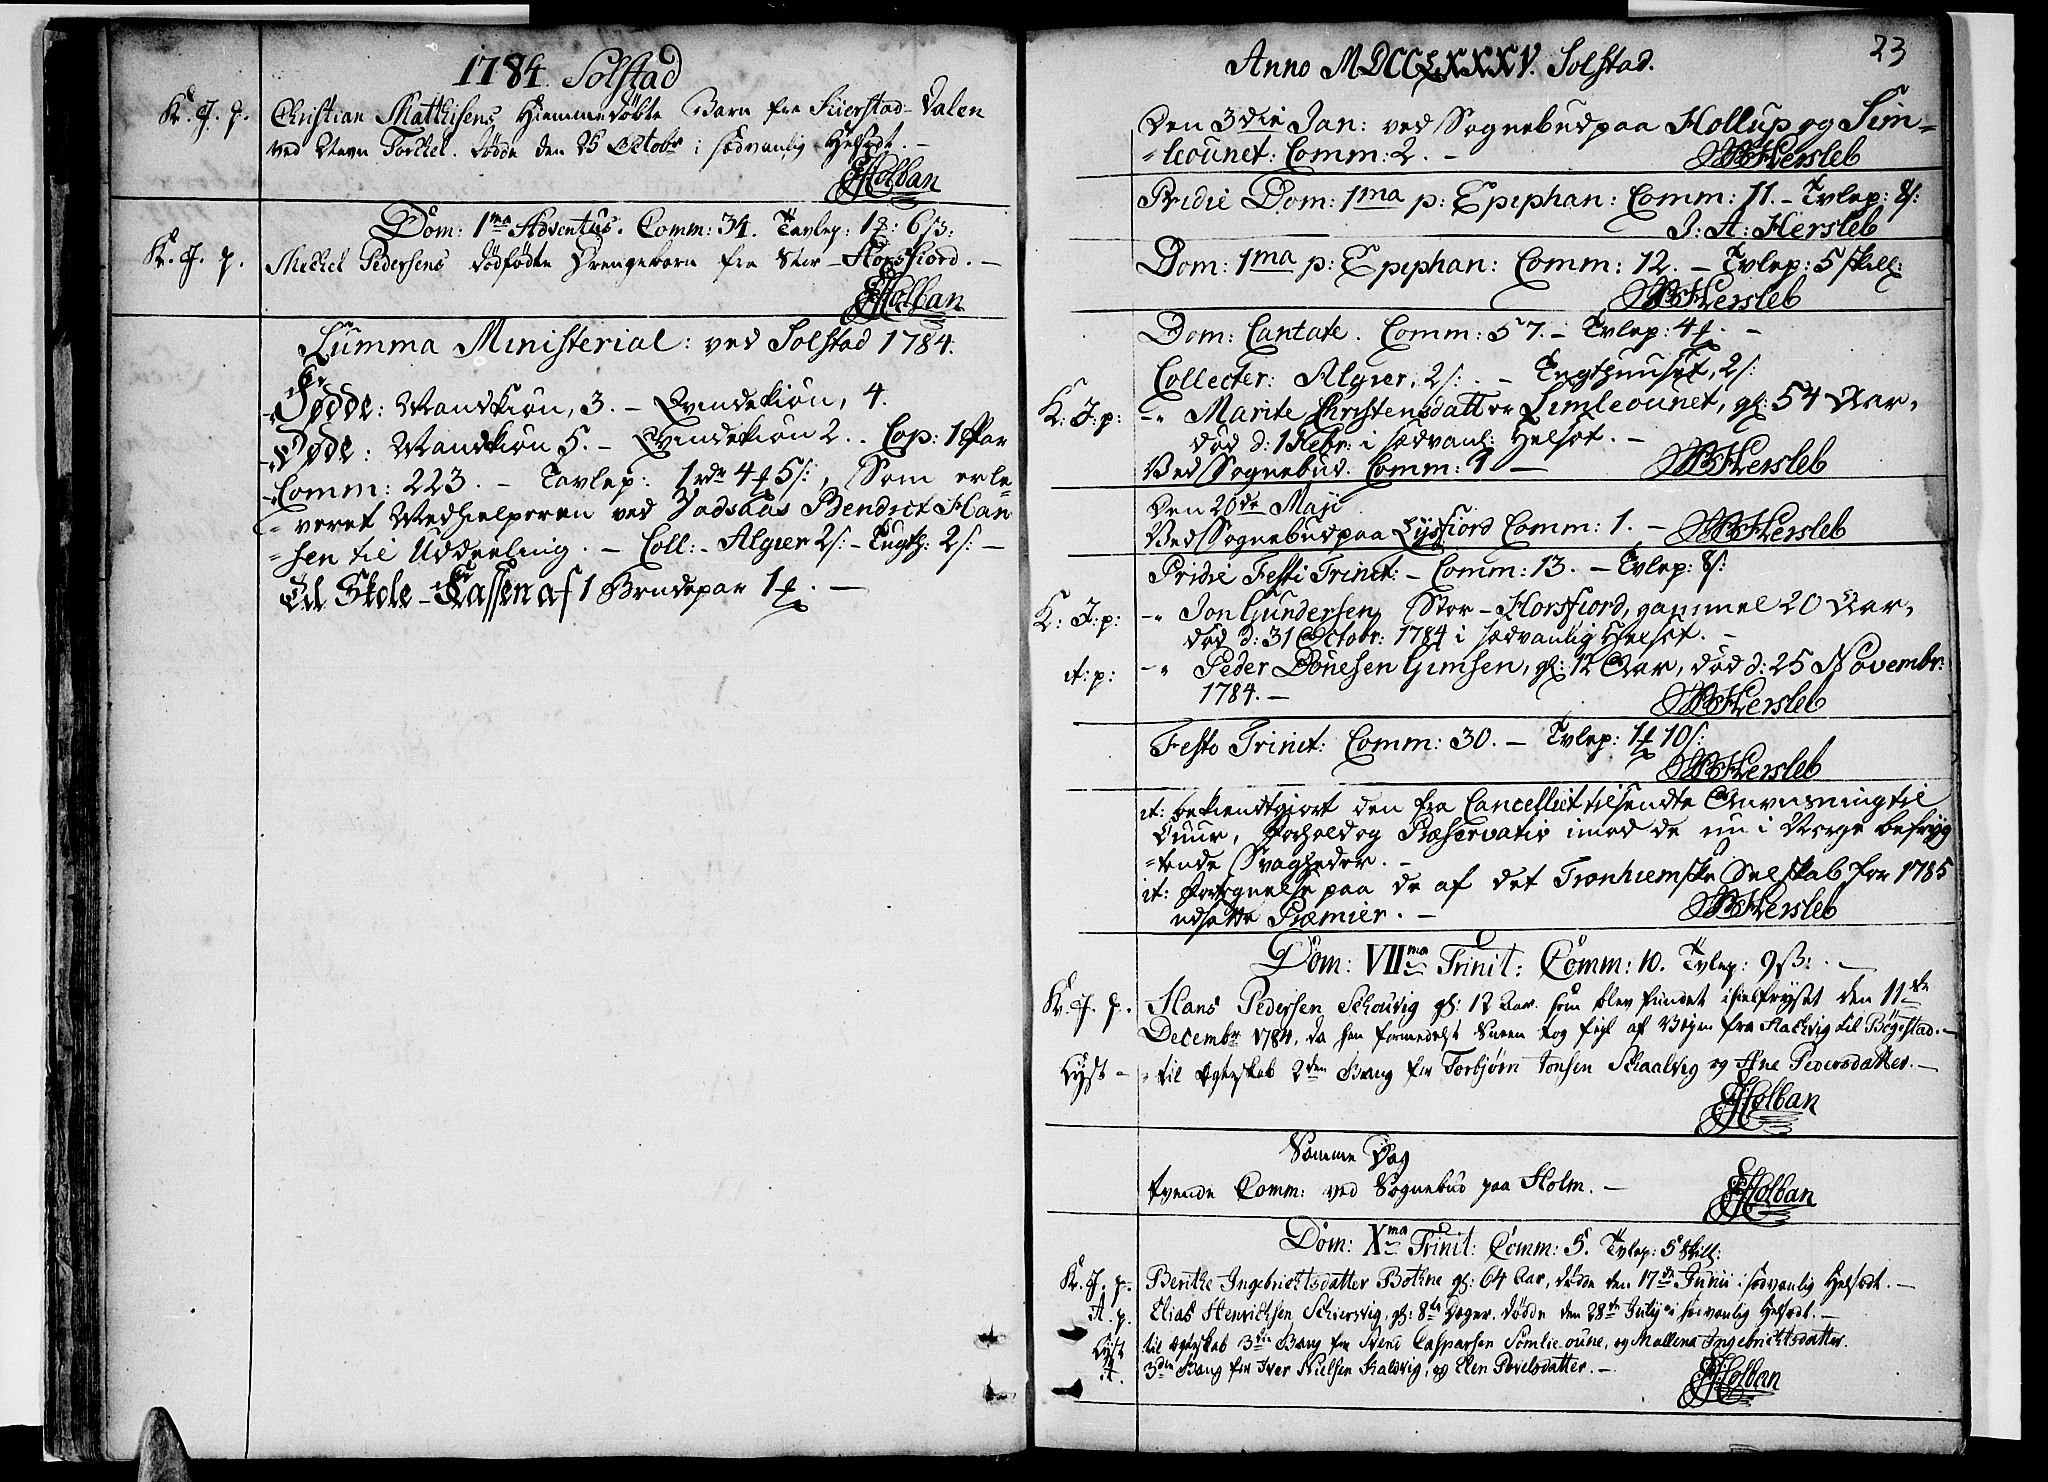 1784. Solstad
K. J. p. Christian Matthisens Hiemmedøbte Barn fra Fuerstad-Dalen
ved Navn Torckel. døde den 25 Octobr i sædvanlig Helsodt. -
Holban
Dom: 1ma Adventus. Comm: 34. Tavlep: 6ß:
K. J. p. Mickel Pedersens dødfødte Drengebarn fra Stor-Horsfiord. -
Holban
Summa Ministerial: ved Solstad 1784.
Fødde: Mandkiøn, 3. - Qvindekiøn, 4.
Døde: Mandkiøn 5. - Qvindekiøn 2. . Cop: 1 Par
Comm: 223. - Tavlep: 1 rdr 4 5/:, Som erle=
=veret Medhielperen ved Vadsaas Bendict Han
=sen til Uddeeling. - Coll: - Algier 2/: - Tugth: 2/: -
Til Skole-Cassen af 1 Brudepar 1 . -
23
Anno MDCCLXXXV. Solstad.
Den 3die Jan: ved Sognebud paa Hollup og Sim=
=leounet: Comm: 2. -
Hersleb
Pridie Dom: 1ma p: Epiphan: Comm: 11. - Tvlep: 8/:
J: A: Hersleb
Dom: 1ma p: Epiphan: Comm: 12. - Tvlep: 5 skill:
Hersleb
Dom: Cantate. Comm: 57. - Tvlep: 4 . -
Collecter: Algier, 2/: . - Tugthuuset, 2/:
K: J: p: -" Marite Christensdatter Simleounet, gl: 54 Aar,
død d: 1 Febr: i sædvanl: Helsot. -
Ved Sognebud. Comm: 1 -
Hersleb
Den 20de Maji
Ved Sognebud paa Lysfiord Comm: 1. -
Hersleb
Pridie Festi Trinit: - Comm: 13. - Tvlep: 8/:
K: J: p: -" Jon Gundersen, Stor-Horsfiord, gammel 20 Aar,
død d: 31 Octobr: 1784 i sædvanlig Helsot. -
it: p: -" Peder Dønesen Gimsen, gl: 12 Aar, død d: 25 Novembr:
1784. -
Hersleb
Festo Trinit: Comm: 30. - Tvlep: 1 10/:
Hersleb
it: bekiendtgjort den fra Cancelliet tilsendte Anviisning til
Cuur, Forhold og Præservativ imod de nu i Norge befryg
=tende Svagheder. -
it: Fortegnelse paa de af det Tronhiemske Selskab for 1785
udsatte Præmier. -
Hersleb
Dom: VIIma Trinit: Comm: 10. Tvlep: 9ß: . -
K. J. p. Hans Pedersen Schouvig gl: 12 Aar. som blev fundet ihielfryst den 11te
Decembr 1784, da han formedelst Sneen tog fejl af Vejen fra Hachvig til Bøgestad. -
Lyst - " til Egteskab 2den Gang for Torbjørn Jonsen Schaalvig og Ane Pedersdatter. -
Holban
Samme Dag
tvende Comm: ved Sognebud paa Holm. -
Holban
Dom: Xma Trinit: Comm: 5. Tvlep: 5 skill:
K. J. p. Berithe Ingebrichtsdatter Bothne gl: 64 Aar, døde den 17de Junii i sædvanlig Helsodt. -
It. p. Elias Henrichsen Schiersvig, gl: 8te Dager. døde den 28de July i sædvanlig Helsodt. -
Lyst til Egteskab 3die Gang for Svend Casparsen Simleoune, og Mallena Ingebrichtsdatter.
It. 3die Gang for Iver Nielsen Kalsvig, og Elen Povelsdatter. -
Holban